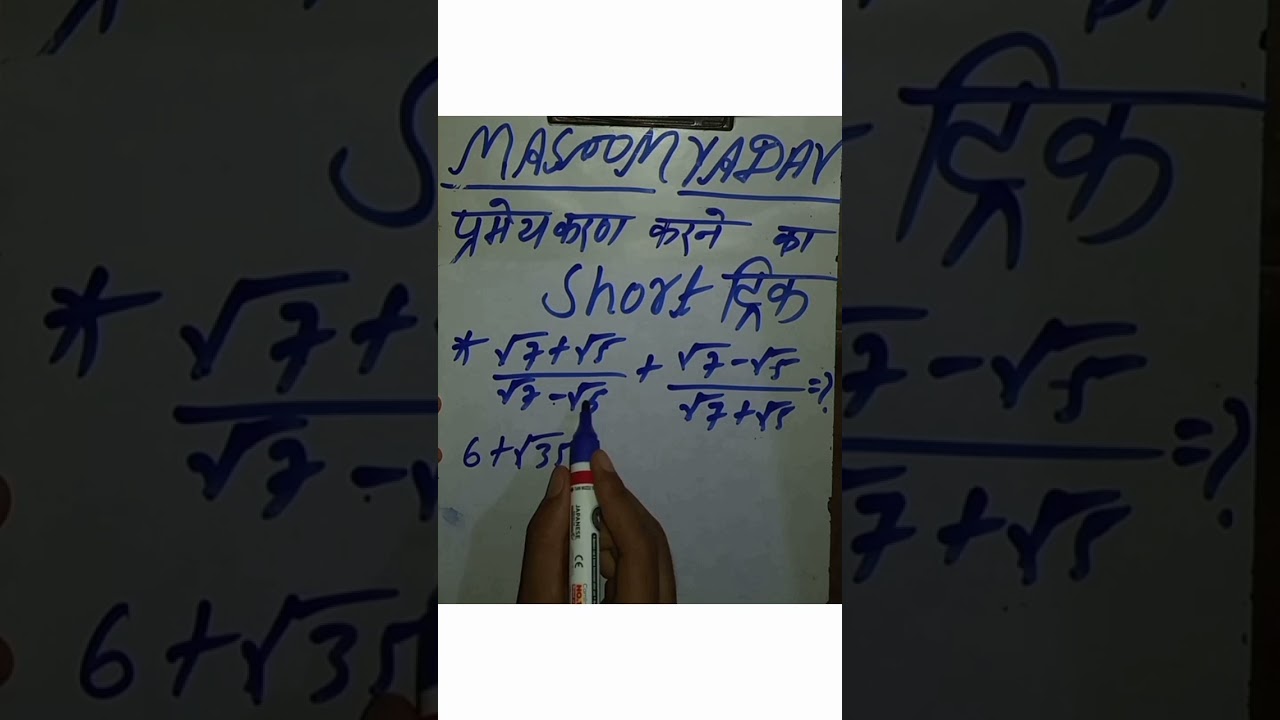 MASOOM YADAV
प्रमेयकरण करने का
Short ट्रिक
* √7+√5/√7-√5 + √7-√5/√7+√5 =?
6+√35
JAPANESE
CE